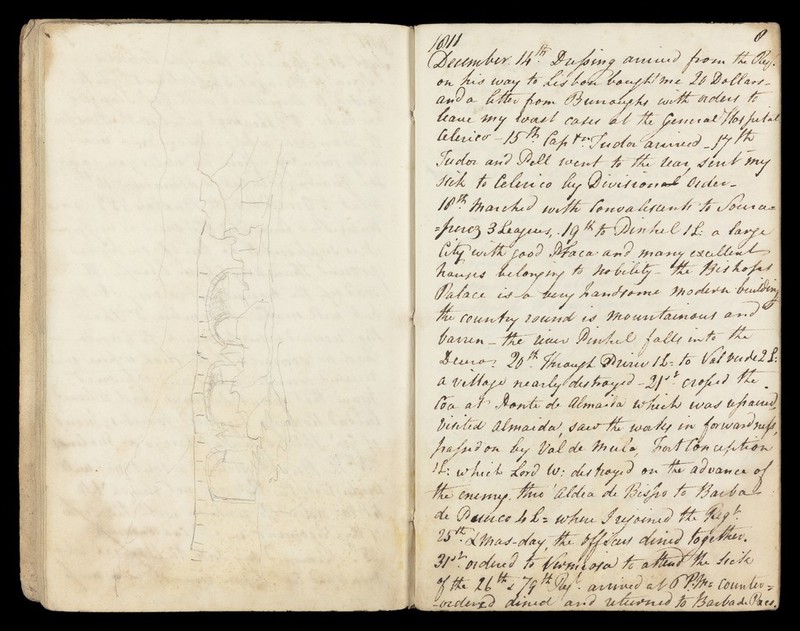 1811 8
December 14th. Dussing arrived from the Regt.
on his way to Lisbon bought me 20 Dollars -
and a letter from Burroughs with orders to
leave my worst cases at the General Hospital
Celerico - 15th Captn. Tudor arrived - 17th
Tudor and Pell went to the rear, sent my
sick to Celerico by Divisional Order -
18th. Marched with Convalescents to Soura=
=perez 3 Leagues, 19th to Pinhel 1 L: a large
City with good Praca and many excellent
houses belonging to Nobility - the Bishops
Palace is a very handsome modern building
the country round is mountainous and
barren - the river Pinhel falls into the
Douro. 20th. Through 1 L: to Valverde 2 L:
a village nearly destroyed - 21st. crossed the
Coa at Ponte de Almaida which was repaired,
visited Almaida, saw the works in forwardness,
passed on by Val de Mula, Fort Conception
1 L: which Lord W: destroyed on the advance of
the enemy. thro' Aldea de Bispo to Barba
de Puerco 4 L= where I rejoined the Regt.
25th. Xmas-day the officers dined together.
31st. ordered to Vermiosa to attend the sick
of the 26th & 79th Regt. arrived at 6 P.M= counter=
-ordered dined and returned to Barba de Paco.